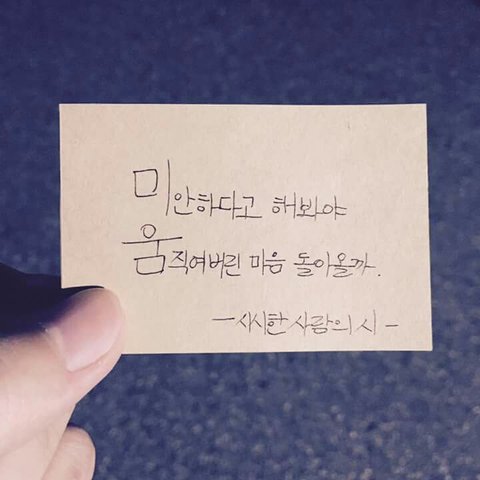 미안하다고 해봐야
움직여버린 마음 돌아올까.
-시시한 사람의 시-